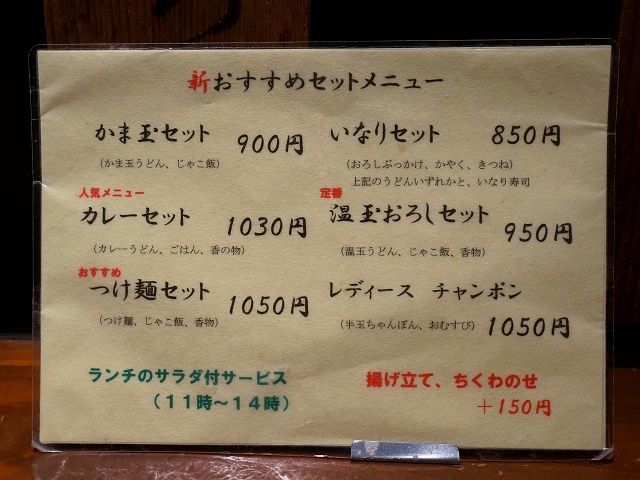 新おすすめセットメニュー
かま玉セット 900円
(かま玉うどん、じゃこ飯)
いなりセット 850円
(おろしぶっかけ、かやく、きつね)
上記のうどんいずれかと、いなり寿司
人気メニュー
カレーセット 1030円
(カレーうどん、ごはん、香の物)
定番
温玉おろしセット 950円
(温玉うどん、じゃこ飯、香物)
おすすめ
つけ麺セット 1050円
(つけ麺、じゃこ飯、香物)
レディース チャンポン
(半玉ちゃんぽん、おむすび) 1050円
ランチのサラダ付サービス
(11時～14時)
揚げ立て、ちくわのせ
＋150円